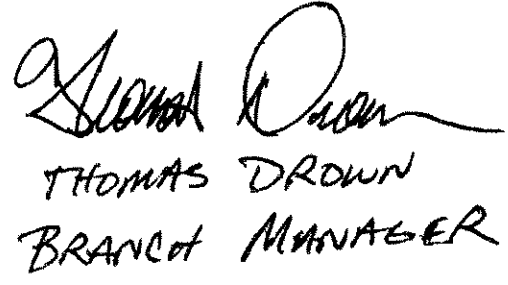 Thomas Drown
THOMAS DROWN
BRANCH MANAGER